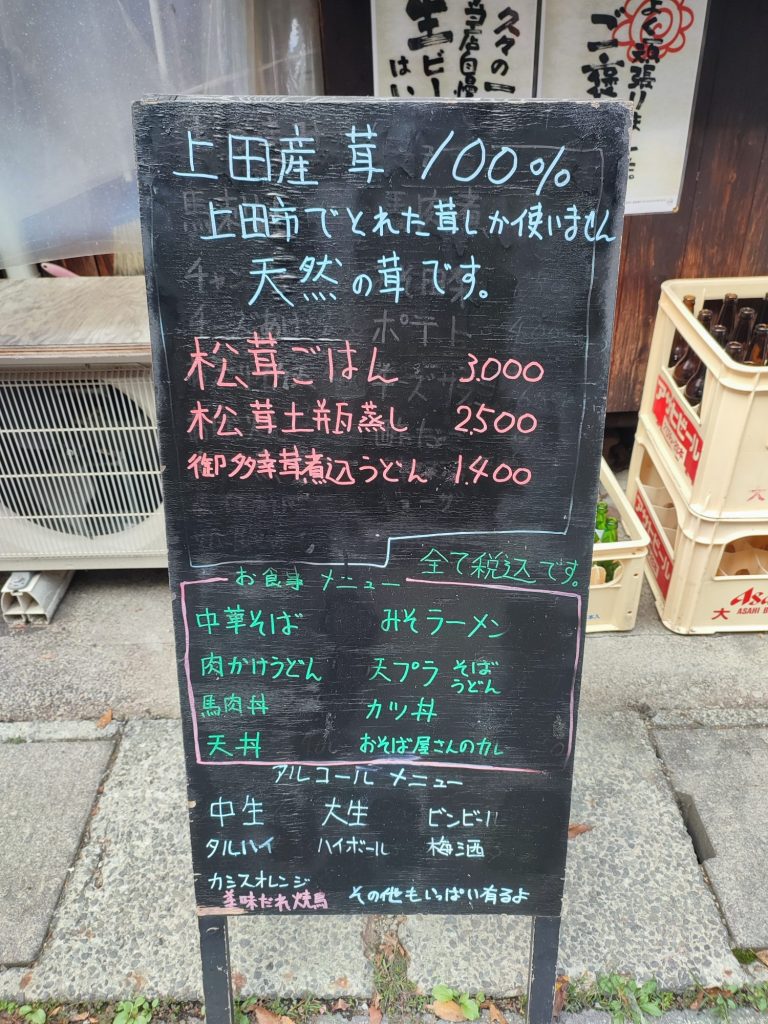 久々の一
当店自慢
生ビー
はい
よく頑張りま
した。
ご褒
上田産 茸 100%
上田市でとれた茸しか使いません
天然の茸です。
松茸ごはん 3.000
松茸土瓶蒸し 2.500
御多幸茸煮込うどん 1.400
全て税込です。
お食事 メニュー
中華そば みそラーメン
肉かけうどん 天プラ そば
うどん
馬肉丼 カツ丼
天丼 おそば屋さんのカレ
アルコール メニュー
中生 大生 ビンビール
タルハイ ハイボール 梅酒
カシスオレンジ
美味だれ焼鳥 その他もいっぱい有るよ
アサヒビール
大
アサヒビール
大
Asa
ASAHI B